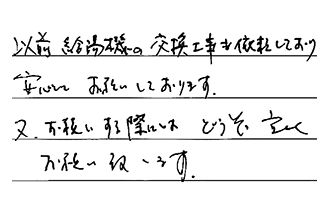 以前給湯機の交換工事を依頼しており
安心してお願いしております。
又、お願いする際には どうぞ宜しく
お願い致します。